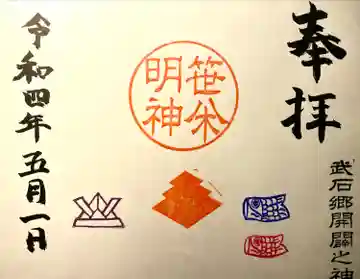 奉拝
武石郷開闢之神
笹焼
明神
令和四年五月一日